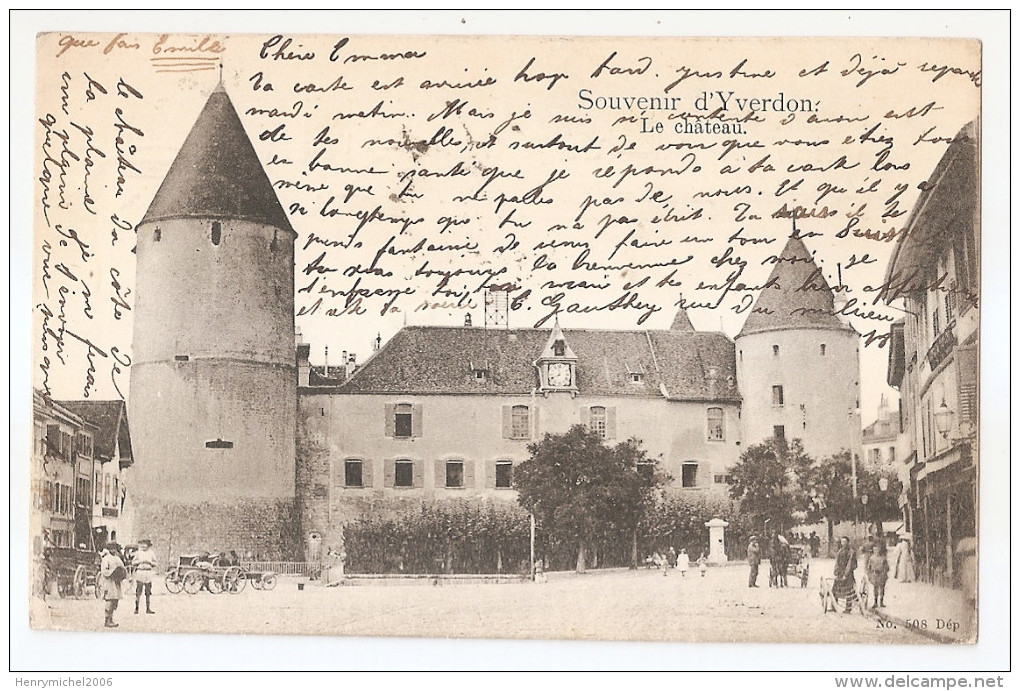 que fais Emile
Chère Emma
Ta carte est arrivée trop tard. Justine et déjà repartie
mardi matin. Mais je suis contente d'avoir
Souvenir d'Yverdon.
Le château.
de tes nouvelles, et surtout de voir que vous êtez tous
en bonne sante que je répond à ta carte
même que tu ne parles pas de nous. Et qu'il y a
si longtemps que tu n'a pas écrit. Ta
fantaisie de venir faire un tour en Suisse
tu seras toujours la bienvenue chez moi. je
t'embrasse toi ton mari et tes enfants bien affectueusement
et ta C. Gauthey rue du milieu
le château du côté de
la plaine que je ne ferais
un plaisir de t'envoyer
quelque vue plus
No. 508 Dép
Henrymichel2006
www.delcampe.net